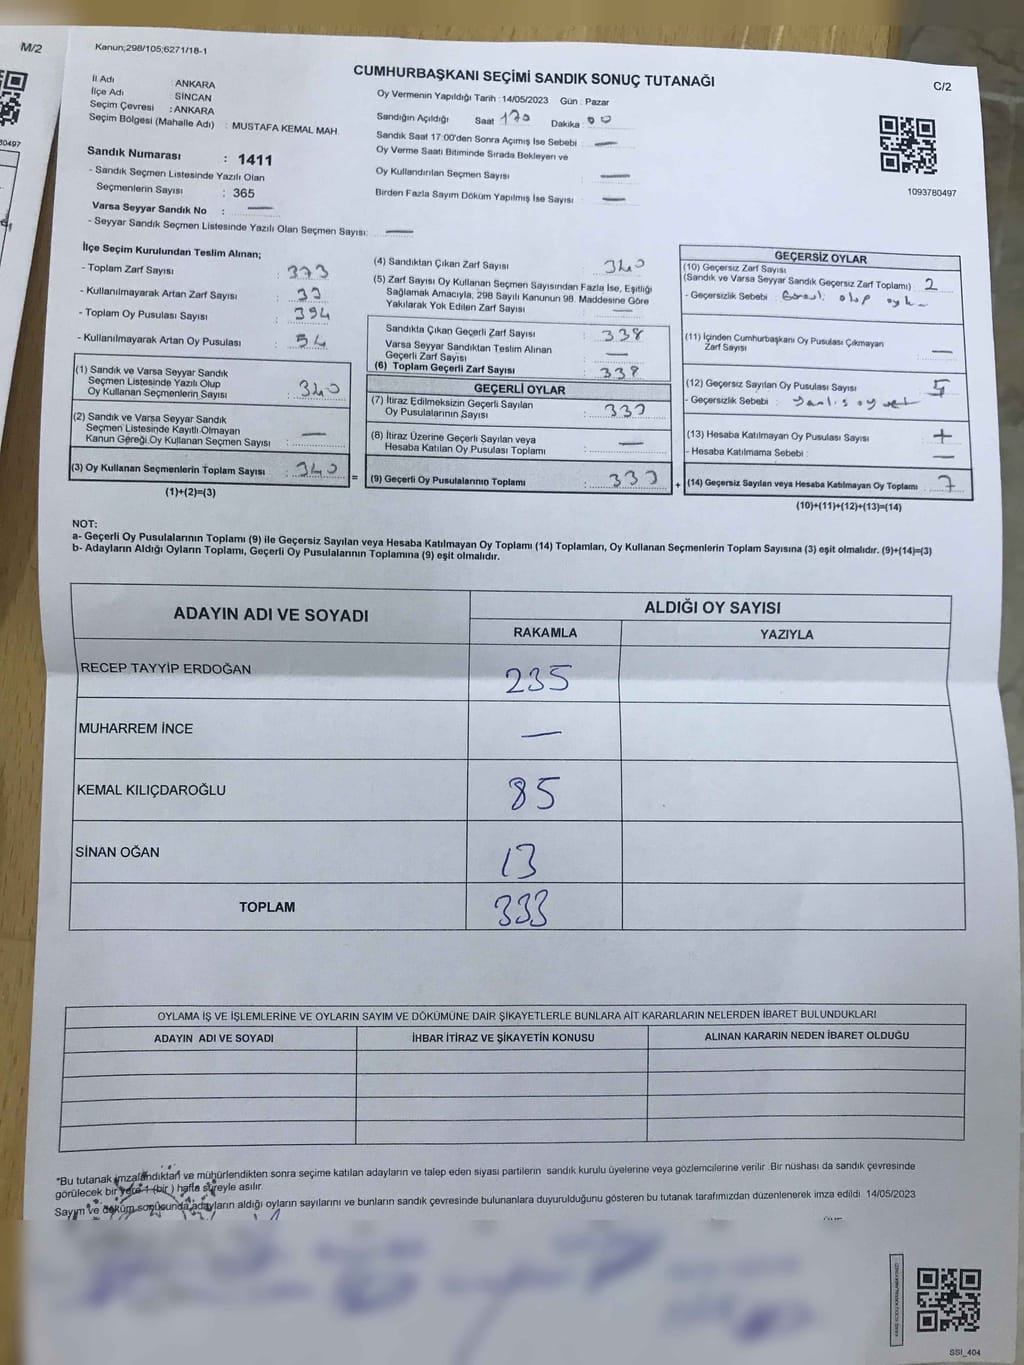 M/2
80497
Kanun;298/105;6271/18-1
CUMHURBAŞKANI SEÇİMİ SANDIK SONUÇ TUTANAĞI
C/2
İl Adı : ANKARA
İlçe Adı : SİNCAN
Seçim Çevresi : ANKARA
Seçim Bölgesi (Mahalle Adı) : MUSTAFA KEMAL MAH.
Sandık Numarası : 1411
- Sandık Seçmen Listesinde Yazılı Olan
Seçmenlerin Sayısı : 365
Varsa Seyyar Sandık No : —
- Seyyar Sandık Seçmen Listesinde Yazılı Olan Seçmen Sayısı: —
Oy Vermenin Yapıldığı Tarih : 14/05/2023 Gün : Pazar
Sandığın Açıldığı Saat Dakika : 00
Sandık Saat 17:00'den Sonra Açımış İse Sebebi : —
Oy Verme Saati Bitiminde Sırada Bekleyen ve
Oy Kullandırılan Seçmen Sayısı : —
Birden Fazla Sayım Döküm Yapılmış İse Sayısı : —
1093780497
İlçe Seçim Kurulundan Teslim Alınan;
- Toplam Zarf Sayısı : 373
- Kullanılmayarak Artan Zarf Sayısı : 33
- Toplam Oy Pusulası Sayısı : 394
- Kullanılmayarak Artan Oy Pusulası : 54
(1) Sandık ve Varsa Seyyar Sandık
Seçmen Listesinde Yazılı Olup
Oy Kullanan Seçmenlerin Sayısı : 340
(2) Sandık ve Varsa Seyyar Sandık
Seçmen Listesinde Kayıtlı Olmayan
Kanun Gereği Oy Kullanan Seçmen Sayısı : —
(3) Oy Kullanan Seçmenlerin Toplam Sayısı : 340
(1)+(2)=(3)
=
(4) Sandıktan Çıkan Zarf Sayısı : 340
(5) Zarf Sayısı Oy Kullanan Seçmen Sayısından Fazla İse, Eşitliği
Sağlamak Amacıyla, 298 Sayılı Kanunun 98. Maddesine Göre
Yakılarak Yok Edilen Zarf Sayısı : —
Sandıkta Çıkan Geçerli Zarf Sayısı : 338
Varsa Seyyar Sandıktan Teslim Alınan
Geçerli Zarf Sayısı : —
(6) Toplam Geçerli Zarf Sayısı : 338
GEÇERLİ OYLAR
(7) İtiraz Edilmeksizin Geçerli Sayılan
Oy Pusulalarının Sayısı : 333
(8) İtiraz Üzerine Geçerli Sayılan veya
Hesaba Katılan Oy Pusulası Toplamı : —
(9) Geçerli Oy Pusulalarının Toplamı : 333
+
GEÇERSİZ OYLAR
(10) Geçersiz Zarf Sayısı
(Sandık ve Varsa Seyyar Sandık Geçersiz Zarf Toplamı) : 2
- Geçersizlik Sebebi :
(11) İçinden Cumhurbaşkanı Oy Pusulası Çıkmayan
Zarf Sayısı : —
(12) Geçersiz Sayılan Oy Pusulası Sayısı : 5
- Geçersizlik Sebebi : yanlış oy
(13) Hesaba Katılmayan Oy Pusulası Sayısı :
- Hesaba Katılmama Sebebi : —
(14) Geçersiz Sayılan veya Hesaba Katılmayan Oy Toplamı : 7
(10)+(11)+(12)+(13)=(14)
NOT:
a- Geçerli Oy Pusulalarının Toplamı (9) ile Geçersiz Sayılan veya Hesaba Katılmayan Oy Toplamı (14) Toplamları, Oy Kullanan Seçmenlerin Toplam Sayısına (3) eşit olmalıdır. (9)+(14)=(3)
b- Adayların Aldığı Oyların Toplamı, Geçerli Oy Pusulalarının Toplamına (9) eşit olmalıdır.
ADAYIN ADI VE SOYADI
ALDIĞI OY SAYISI
RAKAMLA YAZIYLA
RECEP TAYYİP ERDOĞAN 235
MUHARREM İNCE —
KEMAL KILIÇDAROĞLU 85
SİNAN OĞAN 13
TOPLAM 333
OYLAMA İŞ VE İŞLEMLERİNE VE OYLARIN SAYIM VE DÖKÜMÜNE DAİR ŞİKAYETLERLE BUNLARA AİT KARARLARIN NELERDEN İBARET BULUNDUKLARI
ADAYIN ADI VE SOYADI İHBAR İTİRAZ VE ŞİKAYETİN KONUSU ALINAN KARARIN NEDEN İBARET OLDUĞU
*Bu tutanak imzalandıktan ve mühürlendikten sonra seçime katılan adayların ve talep eden siyasi partilerin sandık kurulu üyelerine veya gözlemcilerine verilir .Bir nüshası da sandık çevresinde
görülecek bir yere 1 (bir ) hafta süreyle asılır.
Sayım ve döküm sonucunda adayların aldığı oyların sayılarını ve bunların sandık çevresinde bulunanlara duyurulduğunu gösteren bu tutanak tarafımızdan düzenlenerek imza edildi. 14/05/2023
SSI_404